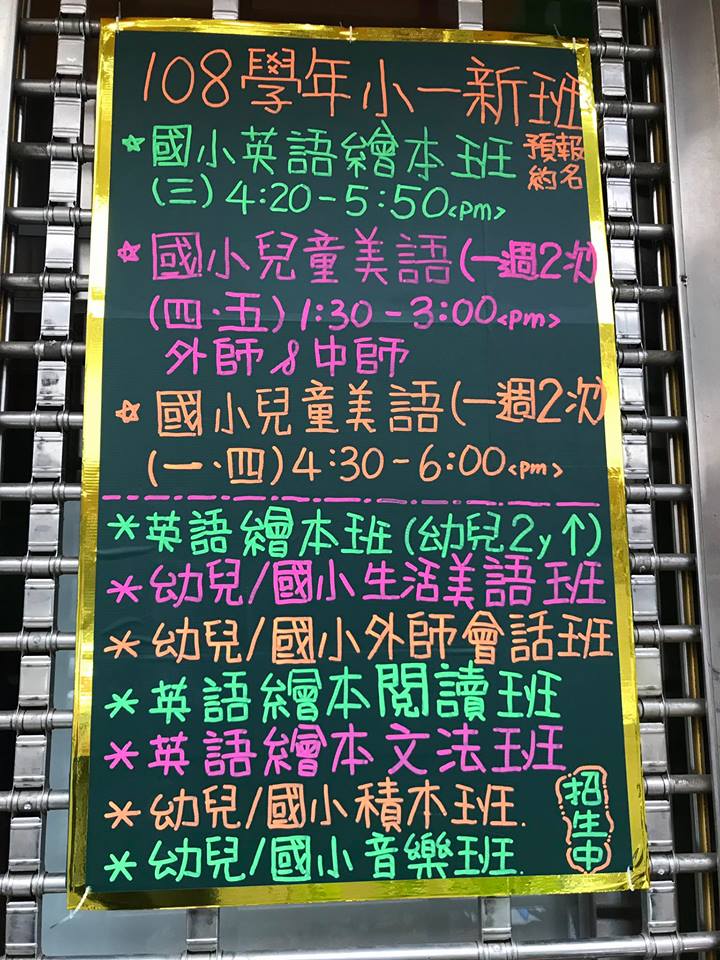 108學年小一新班
預報
約名
☆國小英語繪本班
(三)4:20-5:50<pm>
☆國小兒童美語(一週2次)
(四·五)1:30-3:00<pm>
外師&中師
☆國小兒童美語(一週2次)
(一·四)4:30-6:00<pm>
*英語繪本班(幼兒2y↑)
*幼兒/國小生活美語班
*幼兒/國小外師會話班
*英語繪本閱讀班
*英語繪本文法班
*幼兒/國小積木班.
*幼兒/國小音樂班.
招生中